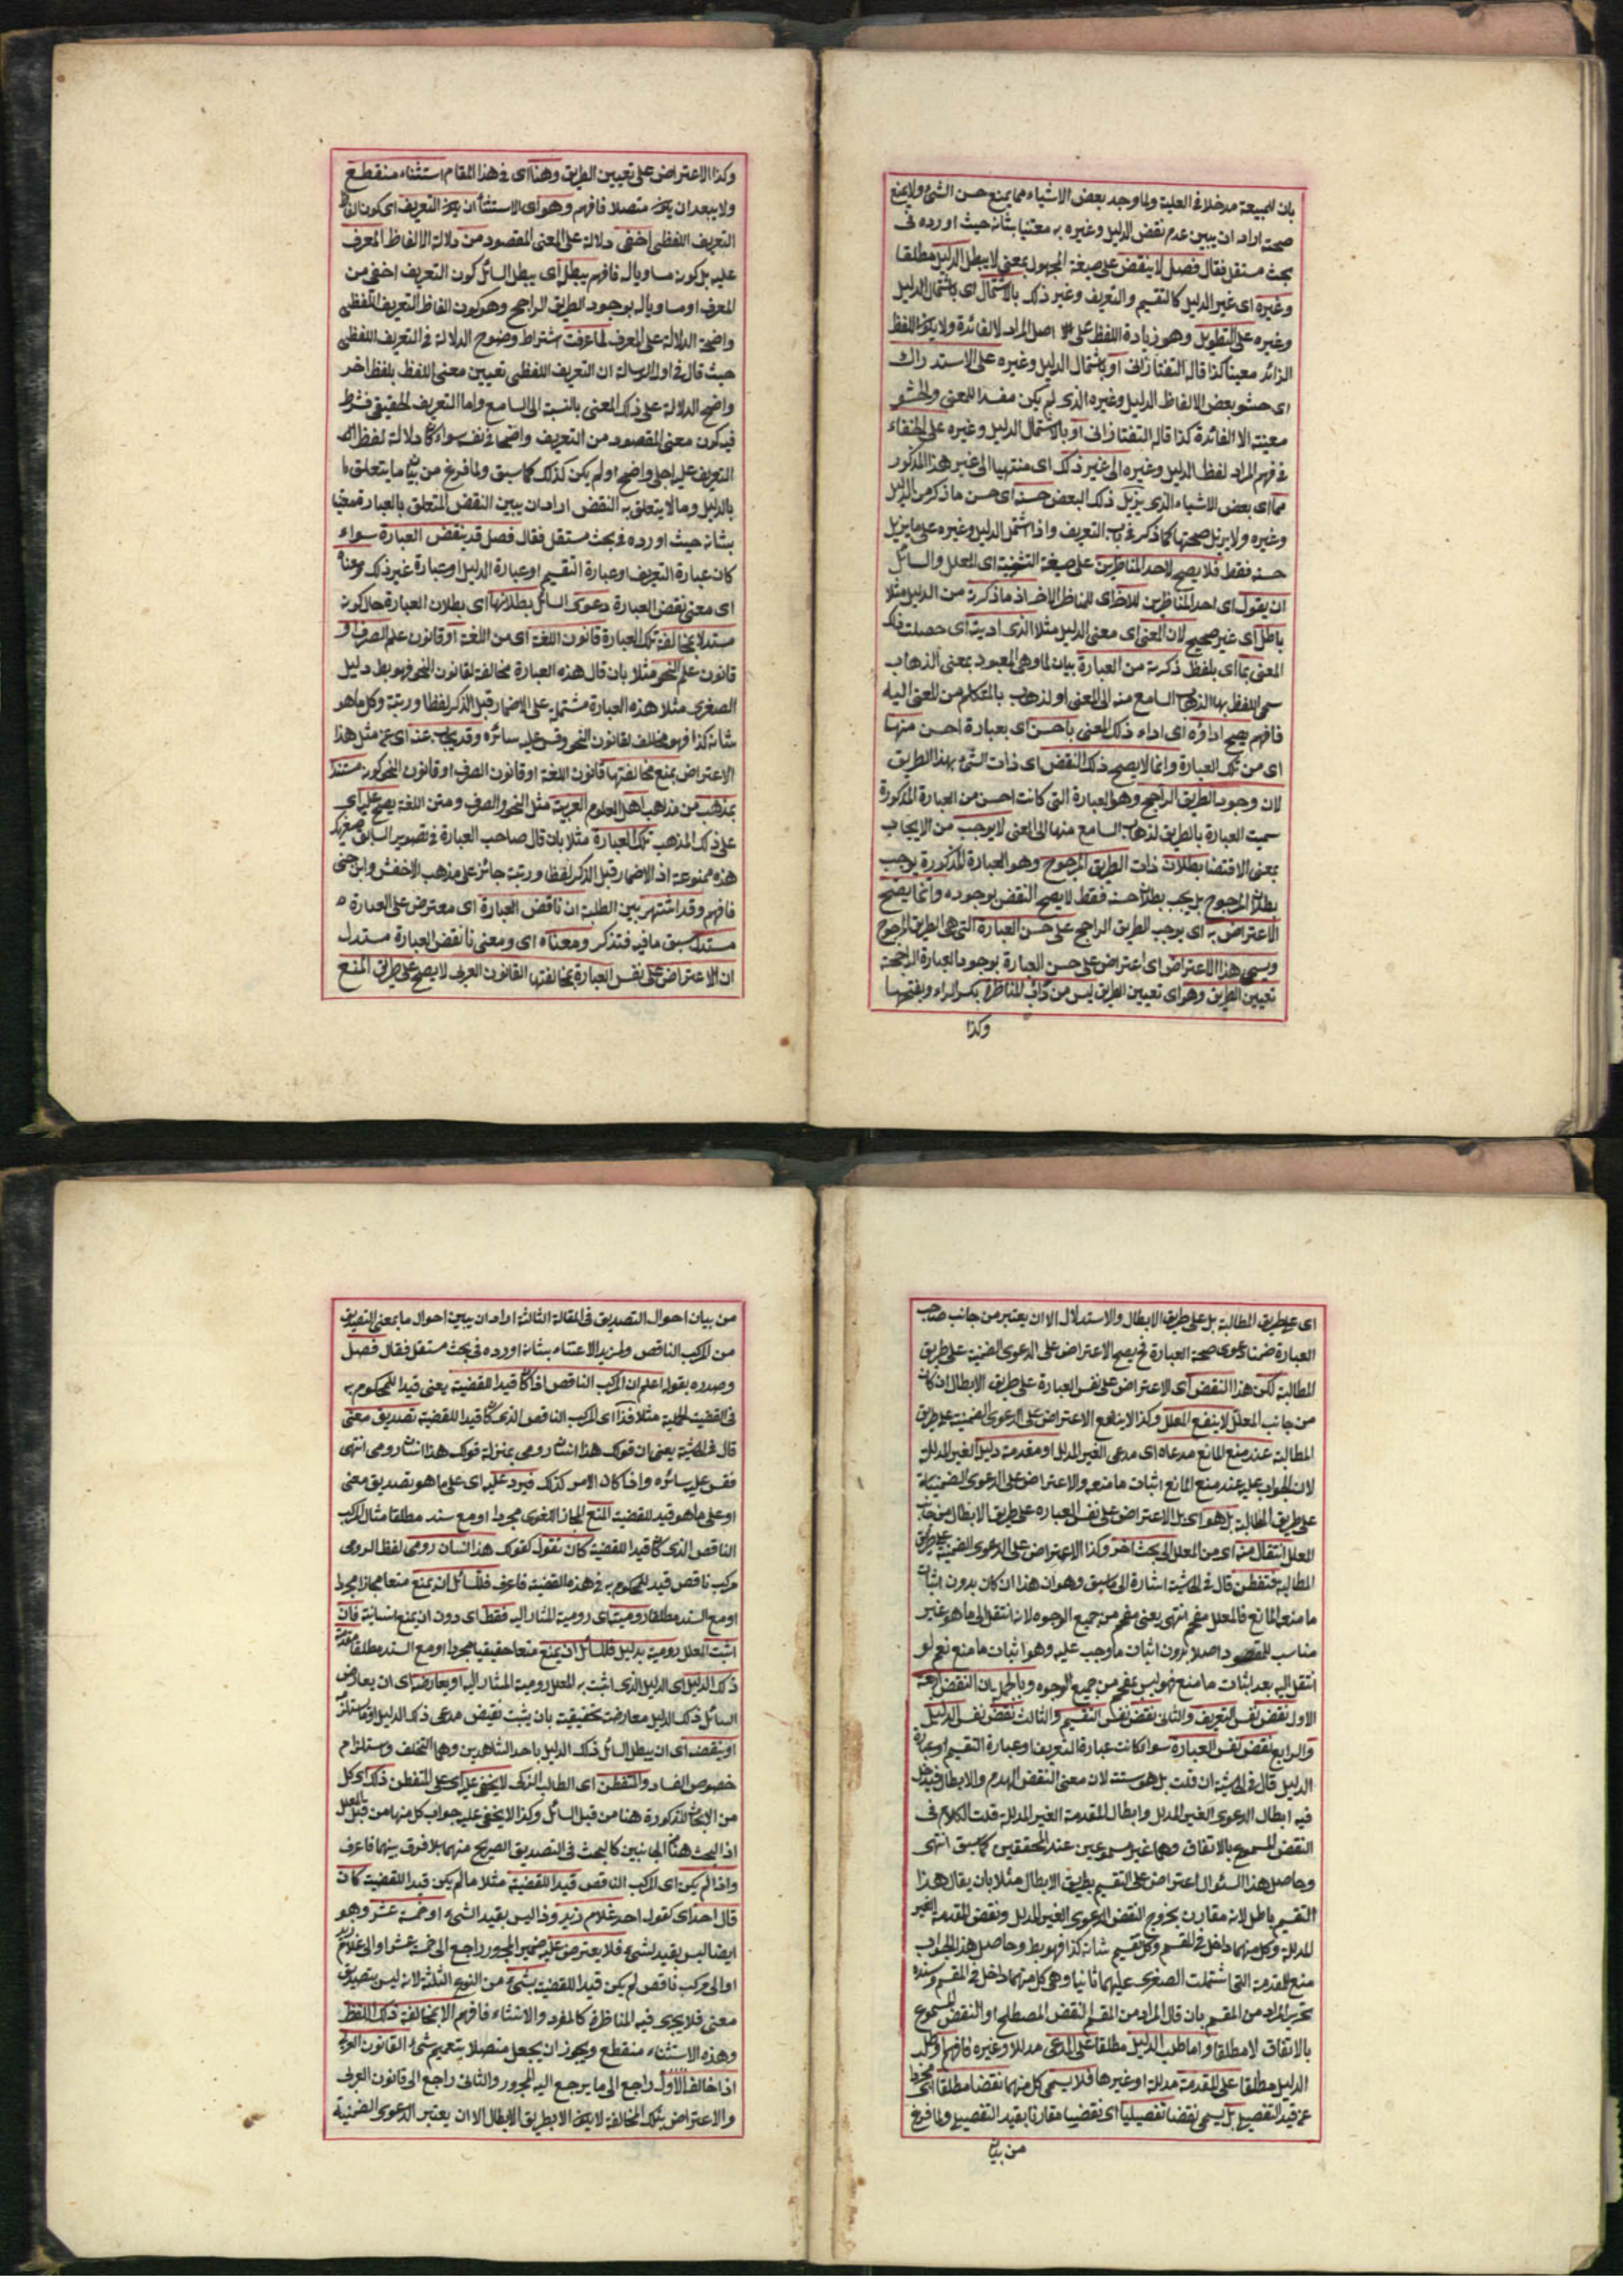 بان للهيئة مدخلا فى العلية ولما وجد بعض الاشياء مما يمنع حسن الشئ ولا يمنع
صحته اراد ان يبين عدم نقض الدليل وغيره به معتنيا بشانه حيث اورده فى
بحث مستقل فقال فصل لا ينقض على صيغة المجهول بمعنى لا يبطل الدليل مطلقا
وغيره اى غير الدليل كالتقسيم والتعريف وغير ذلك بالاشتمال اى باشتمال الدليل
وغيره على التطويل وهو زيادة اللفظ على اصل المراد لا لفائدة ولا يكون اللفظ
الزائد معينا كذا قاله التفتازانى او باشتمال الدليل وغيره على الاستدراك
اى حشو بعض الالفاظ الدليل وغيره الذى لم يكن مفسدا للمعنى والحشو
معينة الا الفائدة كذا قاله التفتازانى او بالاشتمال الدليل وغيره على الخفاء
فى فهم المراد لفظ الدليل وغيره الى غير ذلك اى منتهيا الى غير هذا المذكور
مما اى بعض الاشياء الذى يزيل ذلك البعض حسنه اى حسن ما ذكر من الدليل
وغيره ولا يزيل صحتها كما ذكر فى باب التعريف واذا اشتمل الدليل وغيره على ما يزيل
حسنه فقط فلا يصح لاحد المناظرين على صيغة التثنية اى المعلل والسائل
ان يقول اى احد المناظرين للاخر اى للمناظر الاخر اذ ما ذكرته من الدليل مثلا
باطل اى غير صحيح لان المعنى اى معنى الدليل مثلا الذى اديته اى حصلت ذلك
المعنى بما اى بلفظ ذكرته من العبارة بيان لما وهى المعبود بمعنى الذهاب
سمى اللفظ بها الذهاب السامع منه الى المعنى او لذهاب بالمتكلم من المعنى اليه
فافهم يصح اداؤه اى اداء ذلك المعنى باحسن اى بعبارة احسن منها
اى من تلك العبارة وانما لا يصح ذلك النقض اى ذات الشئ بهذا الطريق
لان وجود الطريق الراجح وهو العبارة التى كانت احسن من العبارة المذكورة
سميت العبارة بالطريق لذهاب السامع منها الى المعنى لا يوجب من الايجاب
بمعنى الاقتضا بطلان ذات الطريق المرجوح وهو العبارة المذكورة يوجب
بطلان المرجوح بل يجب بطلان حسنه فقط لا يصح النقض بوجوده وانما يصح
الاعتراض به اى يوجب الطريق الراجح على حسن العبارة التى هى الطريق المرجوح
ويسمى هذا الاعتراض اى اعتراض على حسن العبارة بوجود العبارة الراجحة
تعيين الطريق وهو اى تعيين الطريق ليس من دأب المناظرة بكسر الراء وبفتحها
وكذا
وكذا الاعتراض على تعيين الطريق وهنا اى فى هذا المقام استثناء منقطع
ولا يبعد ان يكون متصلا فافهم وهو اى الاستثناء ان يكون التعريف اى كون الفاظ
التعريف اللفظى اخفى دلالة على المعنى المقصود من دلالة الالفاظ المعرف
عليه بل كونه مساويا له فافهم يبطل اى يبطل السائل كون التعريف اخفى من
المعرف او مساويا له بوجود الطريق الراجح وهو كون الفاظ التعريف اللفظى
واضحة الدلالة على المعرف لما عرفت اشتراط وضوح الدلالة فى التعريف اللفظى
حيث قال فى اول الرسالة ان التعريف اللفظى تعيين معنى اللفظ بلفظ اخر
واضح الدلالة على ذلك المعنى بالنسبة الى السامع واما التعريف الحقيقى فشرط
فيه كون معنى المقصود من التعريف واضحا فى نفسه سواء كان دلالة لفظ
التعريف عليه اجلى واضح او لم يكن كذلك كما سبق ولما فرغ من بيان ما يتعلق
بالدليل وما لا يتعلق به النقض اراد ان يبين النقض المتعلق بالعبارة معتنيا
بشانه حيث اورده فى بحث مستقل فقال فصل قد ينقض العبارة سواء
كان عبارة التعريف او عبارة التقسيم او عبارة الدليل او عبارة غير ذلك ومعناه
اى معنى نقض العبارة دعوى السائل بطلانها اى بطلان العبارة حال كونه
مستدلا بمخالفة تلك العبارة قانون اللغة اى من اللغة او قانون علم الصرف او
قانون علم النحو مثلا بان قال هذه العبارة مخالفة لقانون النحو فهو بط دليل
الصغرى مثلا هذه العبارة مشتملة على الاضمار قبل الذكر لفظا ورتبة وكل ما هو
شانه كذا فهو مخالف لقانون النحو وقس عليه سائره وقد يجاب عنه اى عن مثل هذا
الاعتراض بمنع مخالفتها قانون اللغة او قانون الصرف او قانون النحو كونه مستندا
بمذهب من مذاهب اهل العلوم العربية مثل النحو والصرف ومتن اللغة يصح عليه اى
على ذلك المذهب تلك العبارة مثلا بان قال صاحب العبارة فى تصوير السابق صغريك
هذه ممنوعة اذ الاضمار قبل الذكر لفظا ورتبة جائز على مذهب الاخفش وابن جنى
فافهم وقد اشتهر بين الطلبة ان ناقض العبارة اى معترض على العبارة
مستدل سبق ما فيه فتذكر ومعناه اى ومعنى ناقض العبارة مستدل
ان الاعتراض على نفس العبارة بمخالفتها القانون العربى لا يصح على طريق المنع
اى على طريق المطالبة بل على طريق الابطال والاستدلال الا ان يعتبر من جانب صاحب
العبارة ضمنا دعوى صحة العبارة فح يصح الاعتراض على الدعوى الضمنية على طريق
المطالبة لكن هذا النقض اى الاعتراض على نفس العبارة على طريق الابطال ان كان
من جانب المعلل لا ينفع المعلل وكذا لا ينفع الاعتراض على الدعوى الضمنية على طريق
المطالبة عند منع المانع مدعاه اى مدعى الغير المدلل او مقدمة دليله الغير المدللة
لان الجواب عليه عند منع المانع اثبات ما منعه والاعتراض على الدعوى الضمنية
على طريق المطالبة بل هو اى بل الاعتراض على نفس العبارة على طريق الابطال من جانب
المعلل انتقال منه اى من المعلل الى بحث اخر وكذا الاعتراض على الدعوى الضمنية على طريق
المطالبة فتفطن قال فى الحاشية اشارة الى ما سبق وهو ان هذا ان كان بدون اثبات
ما منعه المانع فالمعلل مفحم انتهى يعنى مفحم من جميع الوجوه لانه انتقل الى ما هو غير
مناسب للمقصود اصلا بدون اثبات ما وجب عليه وهو اثبات ما منع نعم لو
انتقل اليه بعد اثبات ما منع فهو ليس بمفحم من جميع الوجوه وبالجملة ان النقض اربعة
الاول نقض نفس التعريف والثانى نقض نفس التقسيم والثالث نقض نفس الدليل
والرابع نقض نفس العبارة سواء كانت عبارة التعريف او عبارة التقسيم او عبارة
الدليل قال فى الحاشية ان قلت بل هو ستة لان معنى النقض الهدم والابطال فيدخل
فيه ابطال الدعوى الغير المدلل وابطال المقدمة الغير المدللة قلت الكلام فى
النقض المسموع بالاتفاق وهما غير مسموعين عند المحققين كما سبق انتهى
وحاصل هذا السئوال اعتراض على التقسيم بطريق الابطال مثلا بان يقال هذا
التقسيم باطل لانه مقارن بخروج النقض الدعوى الغير المدلل ونقض المقدمة الغير
المدللة وكل منهما داخل فى المقسم وكل تقسيم شانه كذا فهو بط وحاصل هذا الجواب
منع المقدمة التى اشتملت الصغرى عليها ثانيا وهى كل منهما داخل فى المقسم وسنده
تحرير المراد من المقسم بان قال المراد من المقسم النقض المصطلح او النقض المسموع
بالاتفاق لا مطلقا واما طلب الدليل مطلقا على المدعى مدللا وغيره فافهم او طلب
الدليل مطلقا على المقدمة مدللة او غيرها فلا يسمى كل منهما نقضا مطلقا اى مجردا
عن قيد التفصيلى بل يسمى نقضا تفصيليا اى نقضيا مقارنا بقيد التفصيلى ولما فرغ
من بيان
من بيان احوال التصديق فى المقالة الثالثة اراد ان يبين احوال ما بمعنى التصديق
من المركب الناقص ولمزيد الاعتناء بشانه اورده فى بحث مستقل فقال فصل
وصدره بقوله اعلم ان المركب الناقص اذا كان قيدا للقضية يعنى قيدا للمحكوم به
فى القضية الحملية مثلا فذا اى المركب الناقص الذى كان قيدا للقضية تصديق معنى
قال فى الحاشية يعنى ان قولك هذا انسان رومى بمنزلة قولك هذا انسان رومى انتهى
فقس عليه سائره واذا كان الامر كذلك فيرد عليه اى على ما هو تصديق معنى
او على ما هو قيد للقضية المنع المجاز اللغوى مجردا او مع سند مطلقا مثال المركب
الناقص الذى كان قيدا للقضية كان نقول كقولك هذا انسان رومى لفظ الرومى
مركب ناقص قيد للمحكوم به فى هذه القضية فاعرف فللسائل ان يمنع منعا مجازا مجردا
او مع السند مطلقا روميته اى رومية المشار اليه فقط اى دون ان يمنع انسانيته فان
اثبت المعلل روميته بدليل فللسائل ان يمنع منعا حقيقيا مجردا او مع السند مطلقا مقدمة
ذلك الدليل اى الدليل الذى اثبت به المعلل رومية المشار اليه او يعارضه اى ان يعارض
السائل ذلك الدليل معارضة تحقيقية بان يثبت نقيض مدعى ذلك الدليل
او ينقضه اى ان يبطل السائل ذلك الدليل باحد الشاهدين وهما التخلف واستلزام
خصوص الفساد والتفطن اى الطالب الذكى لا يخفى عليه اى على المتفطن ذلك اى كل
من الابحاث المذكورة هنا من قبل السائل وكذا لا يخفى عليه جواب كل منها من قبل المعلل
اذ البحث هنا من الجانبين كالبحث فى التصديق الصريح منهما بلا فرق بينهما فاعرف
واذا لم يكن اى المركب الناقص قيدا للقضية مثلا ما لم يكن قيدا للقضية كان
قال احد اى كقول احد غلام زيد وذا ليس بقيد الشئ او خمسة عشر وهو
ايضا ليس بقيد لشئ فلا يعترض عليه ضمير المجرور راجع الى خمسة عشر او الى غلام زيد
او الى مركب ناقص لم يكن قيدا للقضية بشئ من النوع الثلثة لانه ليس بتصديق
معنى فلا يجرى فيه المناظرة كالمفرد والانشاء فافهم الا بمخالفة ذلك اللفظ
وهذه الاستثناء منقطع ويجوز ان يجعل متصلا بتعميم شئ القانون العربى
اذا خالف الاول راجع الى ما يرجع اليه المجرور والثانى راجع الى قانون العربى
والاعتراض بتلك المخالفة لا يكون الا بطريق الابطال الا ان يعتبر الدعوى الضمنية